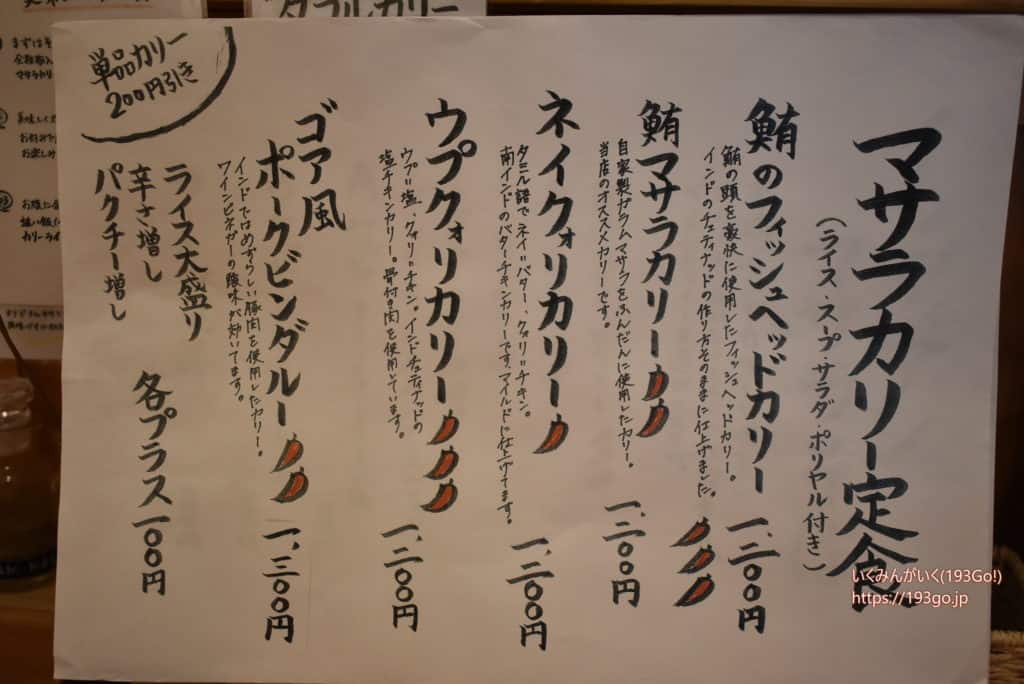 マサラカリー定食
(ライス・スープ・サラダ・ポリヤル付き)
鮪のフィッシュヘッドカリー 一、二〇〇円
鮪の頭を豪快に使用したフィッシュヘッドカリー。
インドのチェティナッドの作り方そのままに仕上げました。
鮪マサラカリー 一、二〇〇円
自家製ガラムマサラをふんだんに使用したカリー。
当店のオススメカリーです。
ネイクォリカリー 一、二〇〇円
タミル語でネイ=バター、クォリ=チキン。
南インドのバターチキンカリーです。マイルドに仕上げてます。
ウプクォリカリー 一、二〇〇円
ウプ=塩、クォリ=チキン。インドチェティナッドの
塩チキンカリー。骨付き肉を使用しています。
ゴア風
ポークビンダルー 一、三〇〇円
インドではめずらしい豚肉を使用したカリー。
ワインビネガーの酸味が効いてます。
ライス大盛り
辛さ増し
パクチー増し
各プラス一〇〇円
単品カリー
200円引き
ダブルカリー
まずはそ
マサラカリ
お好みで
お楽しみ
カリーライ
いくみんがいく(193Go!)
https://193go.jp